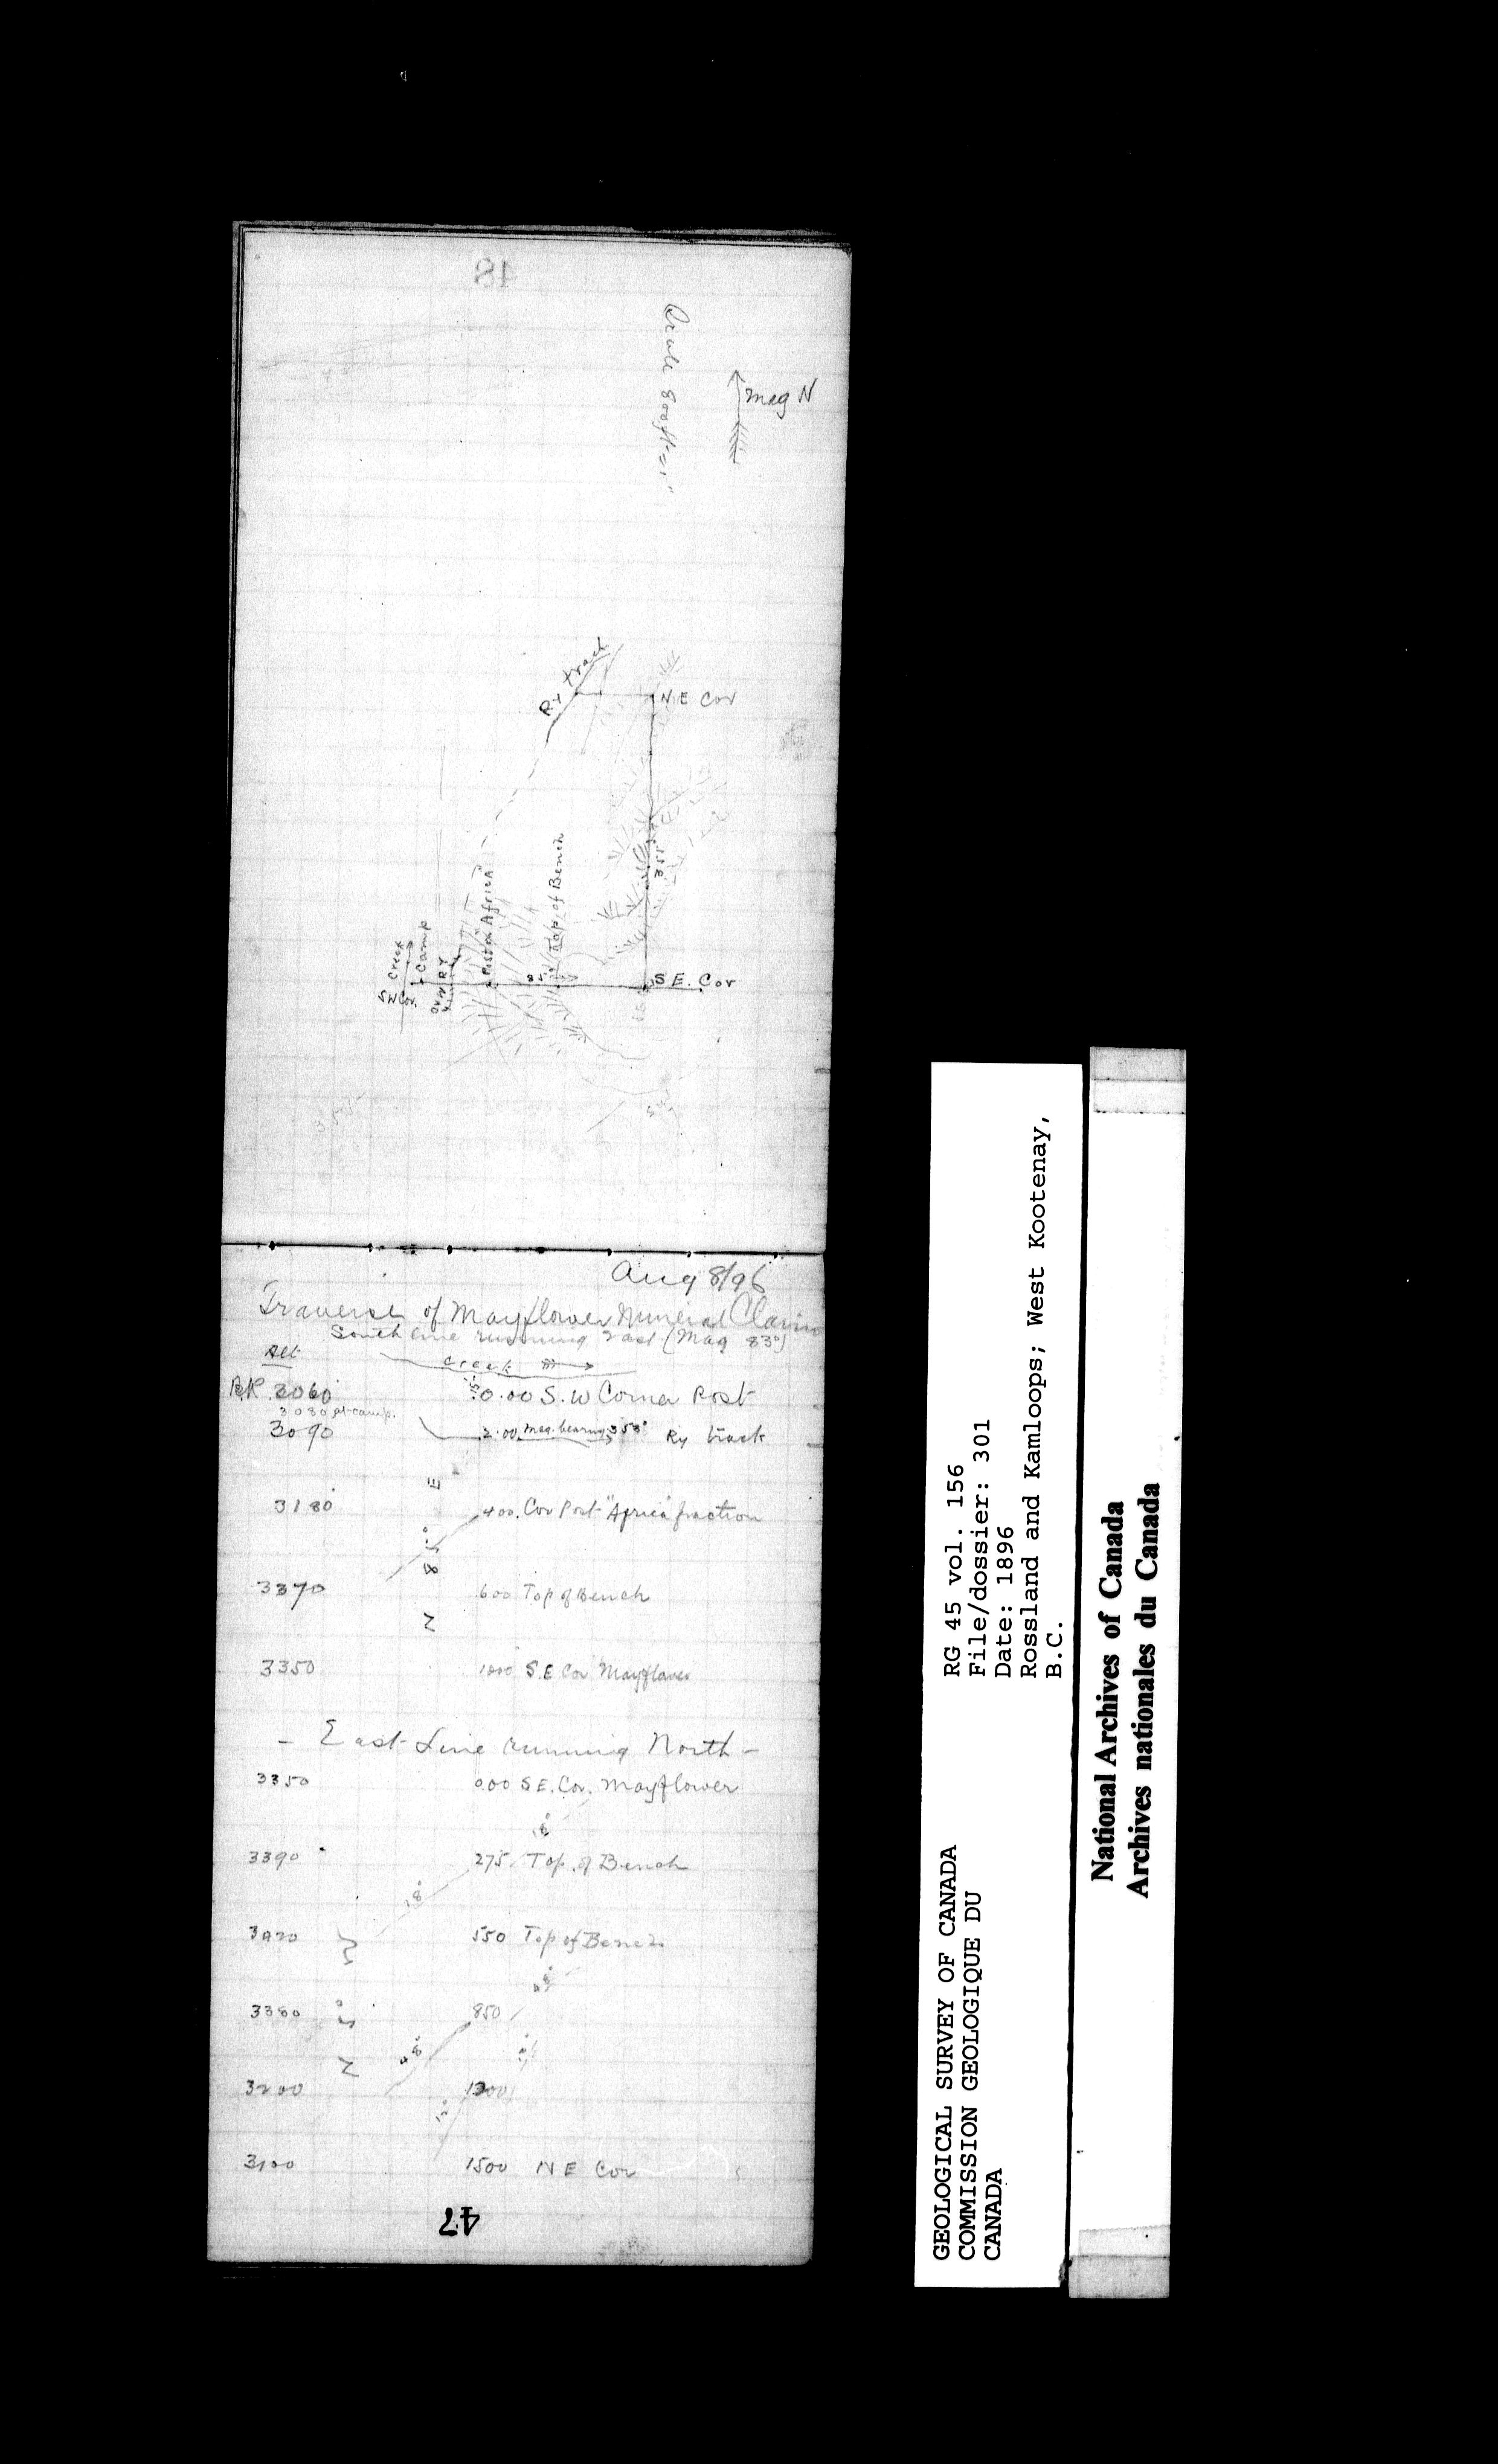 48
Scale 800ft=1"
mag N
Ry track
N.E Cor
Top of Bench
Post Africa
355°
Creek
Camp
RY
85°
SW Cor.
S.E. Cor
Aug 8/96
Traverse of Mayflower Mineral Claim
South line running East (Mag 83°)
Alt
creek
B.R. 3060 0.00 S.W Corner Post
3080 at camp.
3090 2.00 Mag. bearing 353° Ry track
3180 400. Cor Post "Africa" fraction
N 85° E
3370 600 Top of Bench
3350 1000 S.E Cor Mayflower
- East Line running North -
3350 0.00 S E. Cor. Mayflower
3390 275 Top of Bench
3420 550 Top of Bench
3380 850
3200 1200
3100 1500 N E Cor
47
RG 45 vol. 156
File/dossier: 301
Date: 1896
Rossland and Kamloops; West Kootenay,
B.C.
GEOLOGICAL SURVEY OF CANADA
COMMISSION GEOLOGIQUE DU
CANADA
National Archives of Canada
Archives nationales du Canada